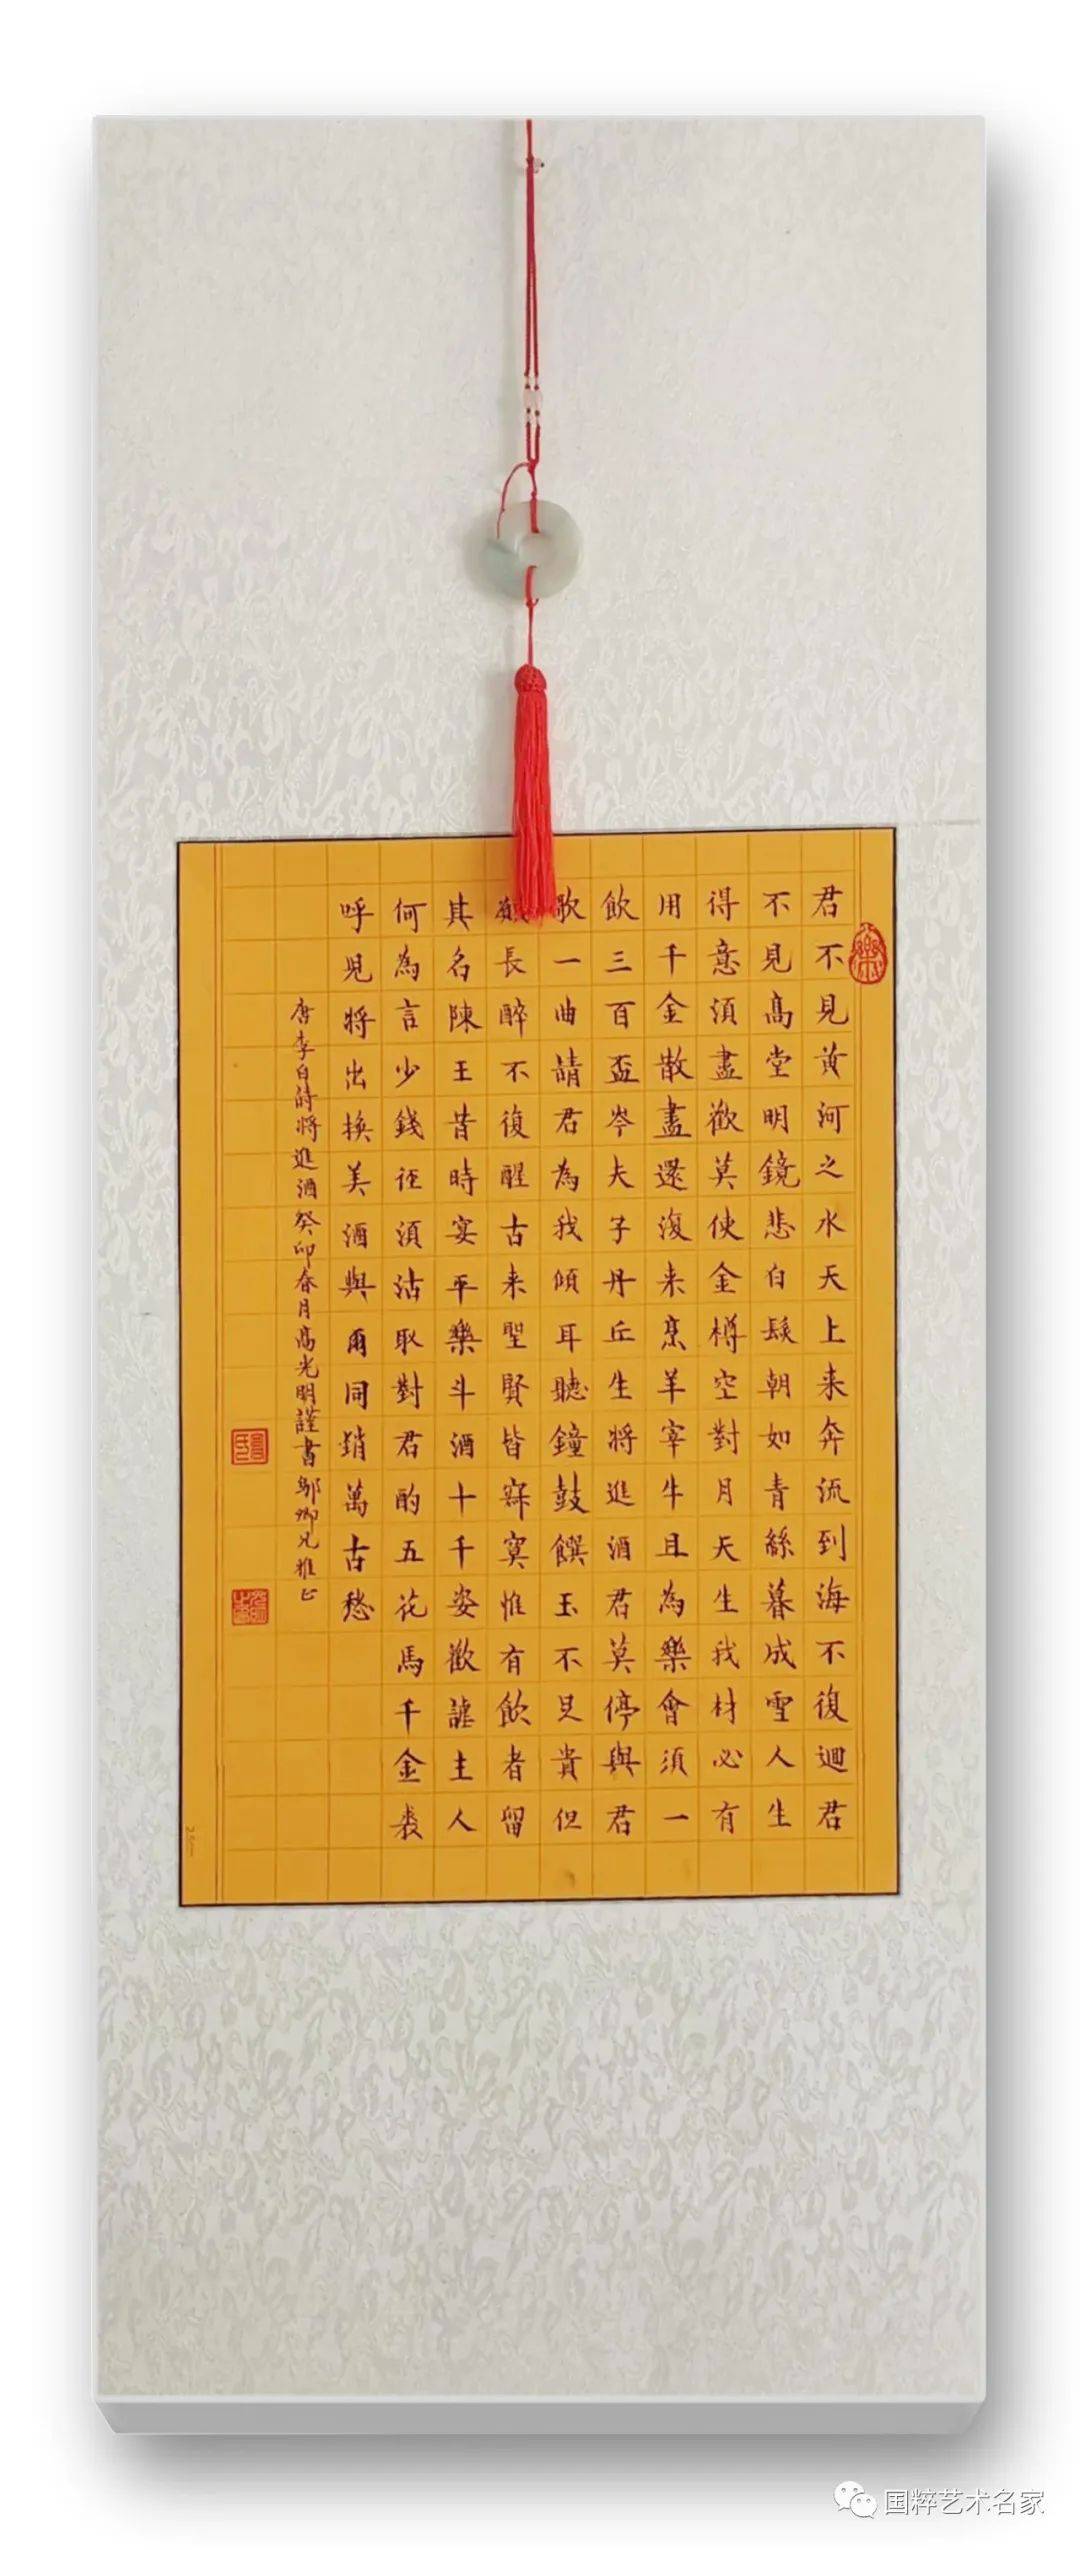 君不見黃河之水天上来奔流到海不復迴君
不見高堂明鏡悲白髮朝如青絲暮成雪人生
得意須盡歡莫使金樽空對月天生我材必有
用千金散盡還復来烹羊宰牛且為樂會須一
飲三百盃岑夫子丹丘生將進酒君莫停與君
歌一曲請君為我傾耳聽鐘鼓饌玉不足貴但
願長醉不復醒古来聖賢皆寂寞惟有飲者留
其名陳王昔時宴平樂斗酒十千姿歡謔主人
何為言少錢徑須沽取對君酌五花馬千金裘
呼兒將出換美酒與爾同銷萬古愁
唐李白詩將進酒癸卯春月高光明謹書鄔卿兄雅正
国粹艺术名家